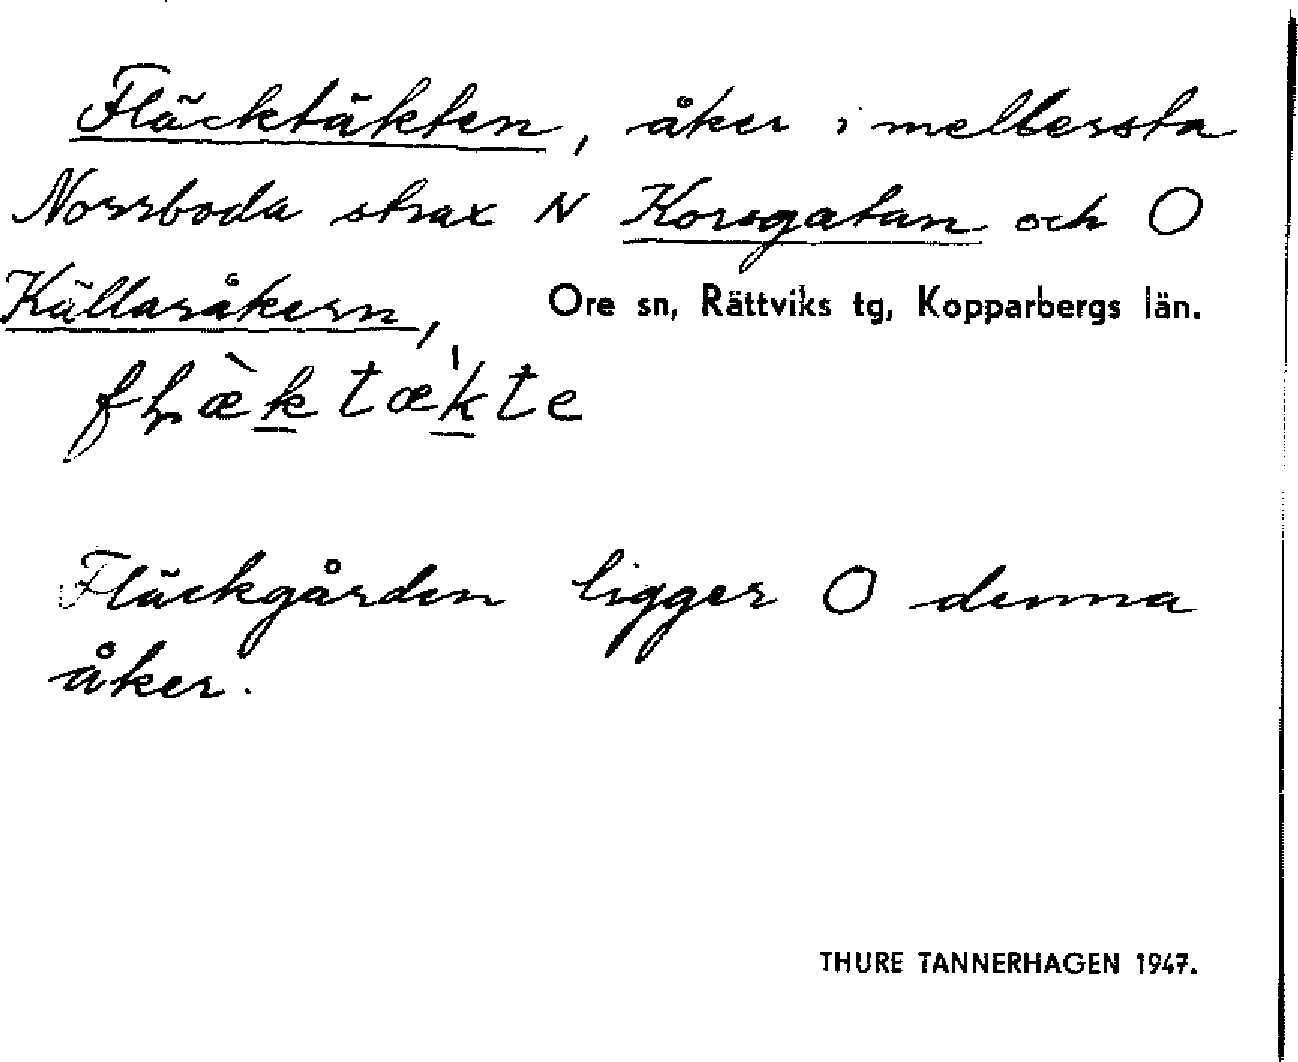 Fläcktäkten, åker i mellersta
Norrboda strax N Korsgatan och O
Källaråkern, Ore sn, Rättviks tg, Kopparbergs län.
Fläckgården ligger O denna
åker.
THURE TANNERHAGEN 1947.